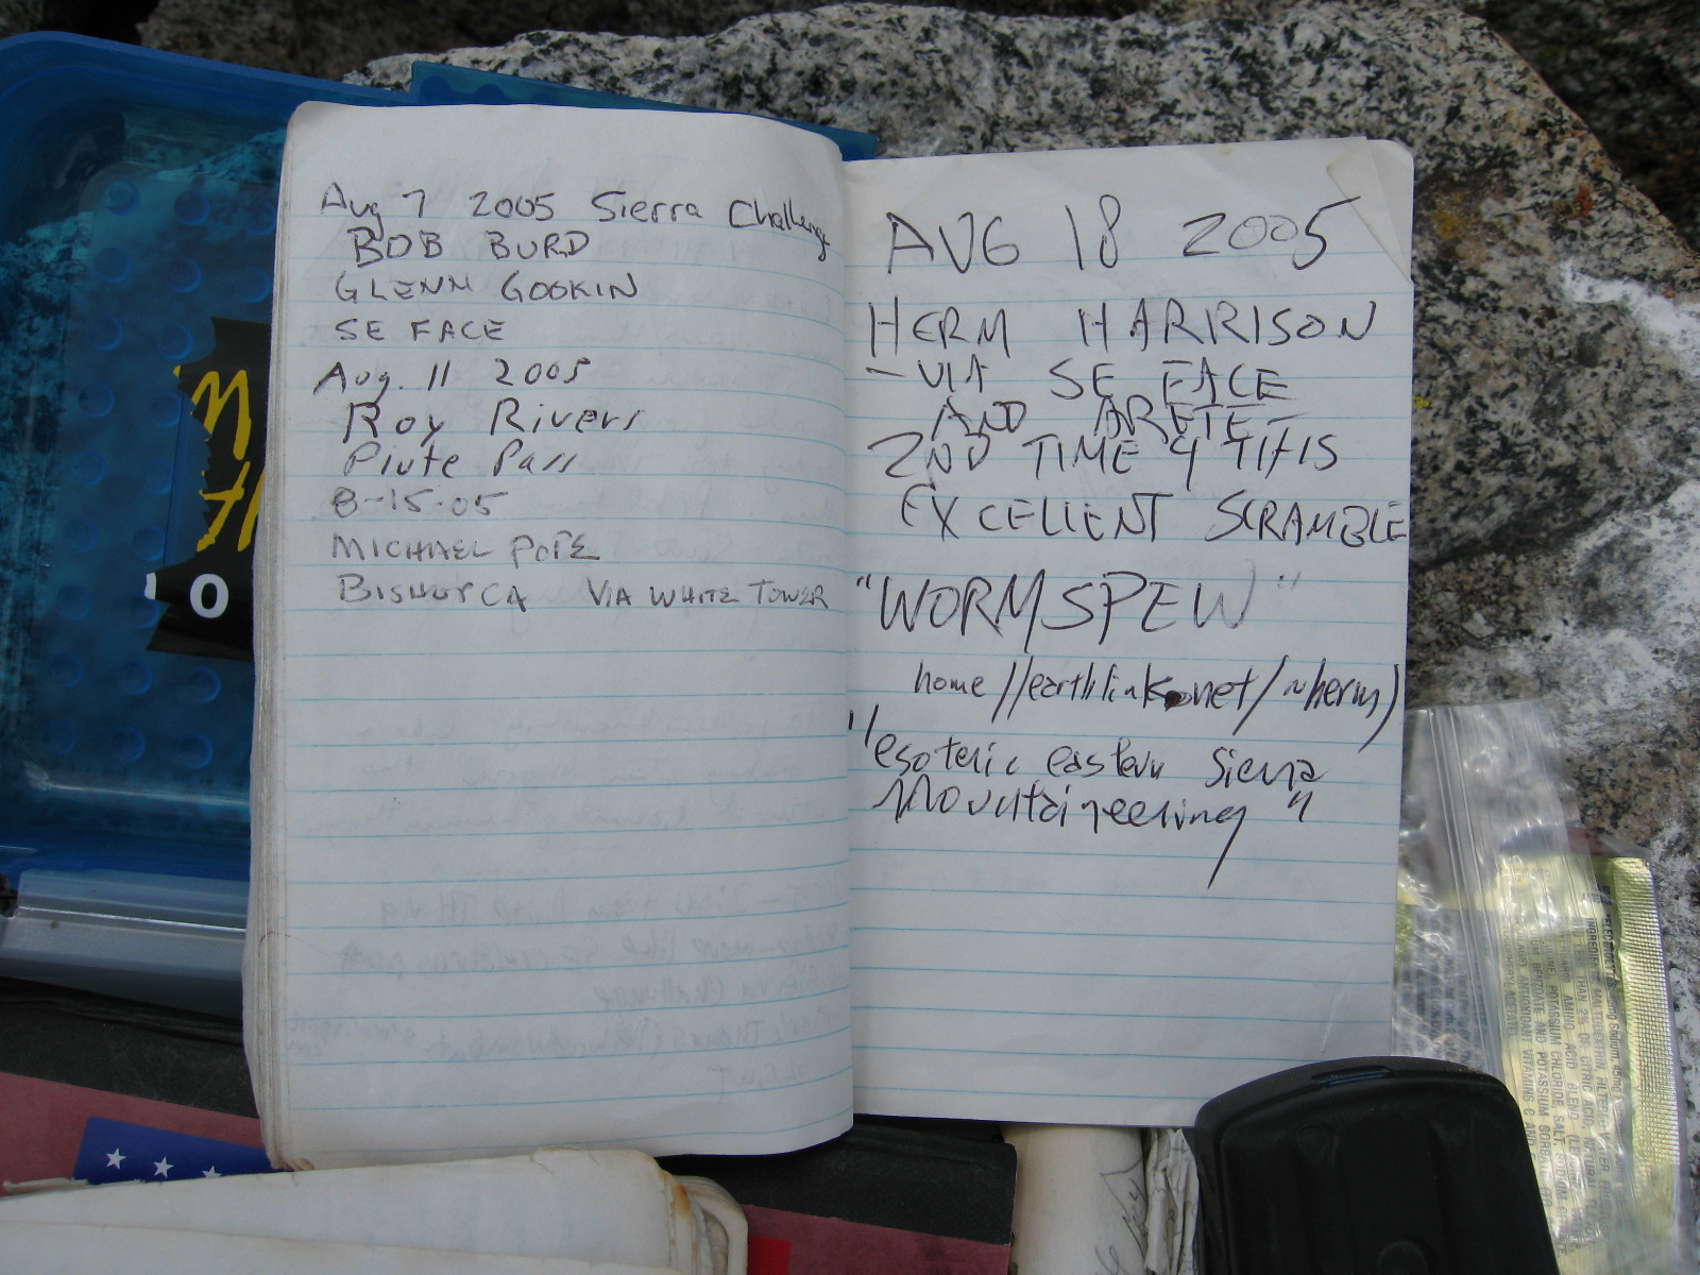 Aug 7 2005 Sierra Challenge
BOB BURD
GLENN GOOKIN
SE FACE
Aug. 11 2005
Roy Rivers
Piute Pass
8-15-05
MICHAEL POPE
BISHOP CA VIA WHITE TOWER
AUG 18 2005
HERM HARRISON
- VIA SE FACE
AND ARETE
2ND TIME 4 THIS
EXCELLENT SCRAMBLE
"WORMSPEW"
home//earthlink.net/~herm)
"esoteric eastern Sierra
Mountaineering"
O